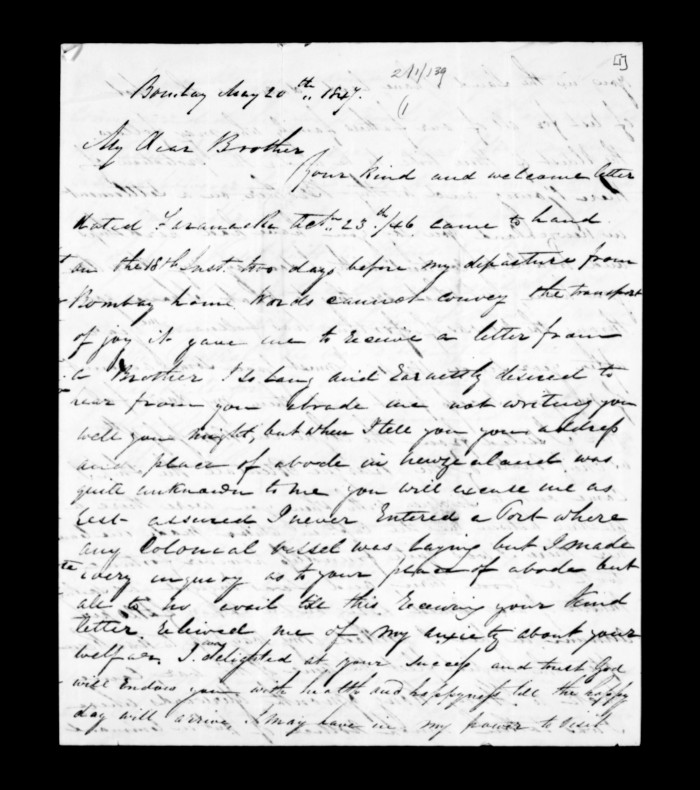 [1]
2/1/139
Bombay May 20th 1847.
My Dear Brother
Your kind and welcome letter
dated Taranacke Octr 23th /46 came to hand
on the 18th Inst. two days before my departure from
Bombay home. Words cannot convey the transport
of joy it gave me to receive a letter from
a Brother I so Long and Earnestly desired to
hear from you abrade me not writing you
well you might, but when I tell you your address
and place of abode in Newzealand was
quite unknown to me you will excuse me as
rest assured I never Entered a Port where
any Colonial vessel was Laying but I made
Every inquery as to your place of abode but
all to no avail till this Receiving your Kind
letter. Relieved me of my anxiety about your
welfare, I am delighted at your Success and trust God
will Endow you with health and happyness till the happy
day will arrive. I may have in my power to visit